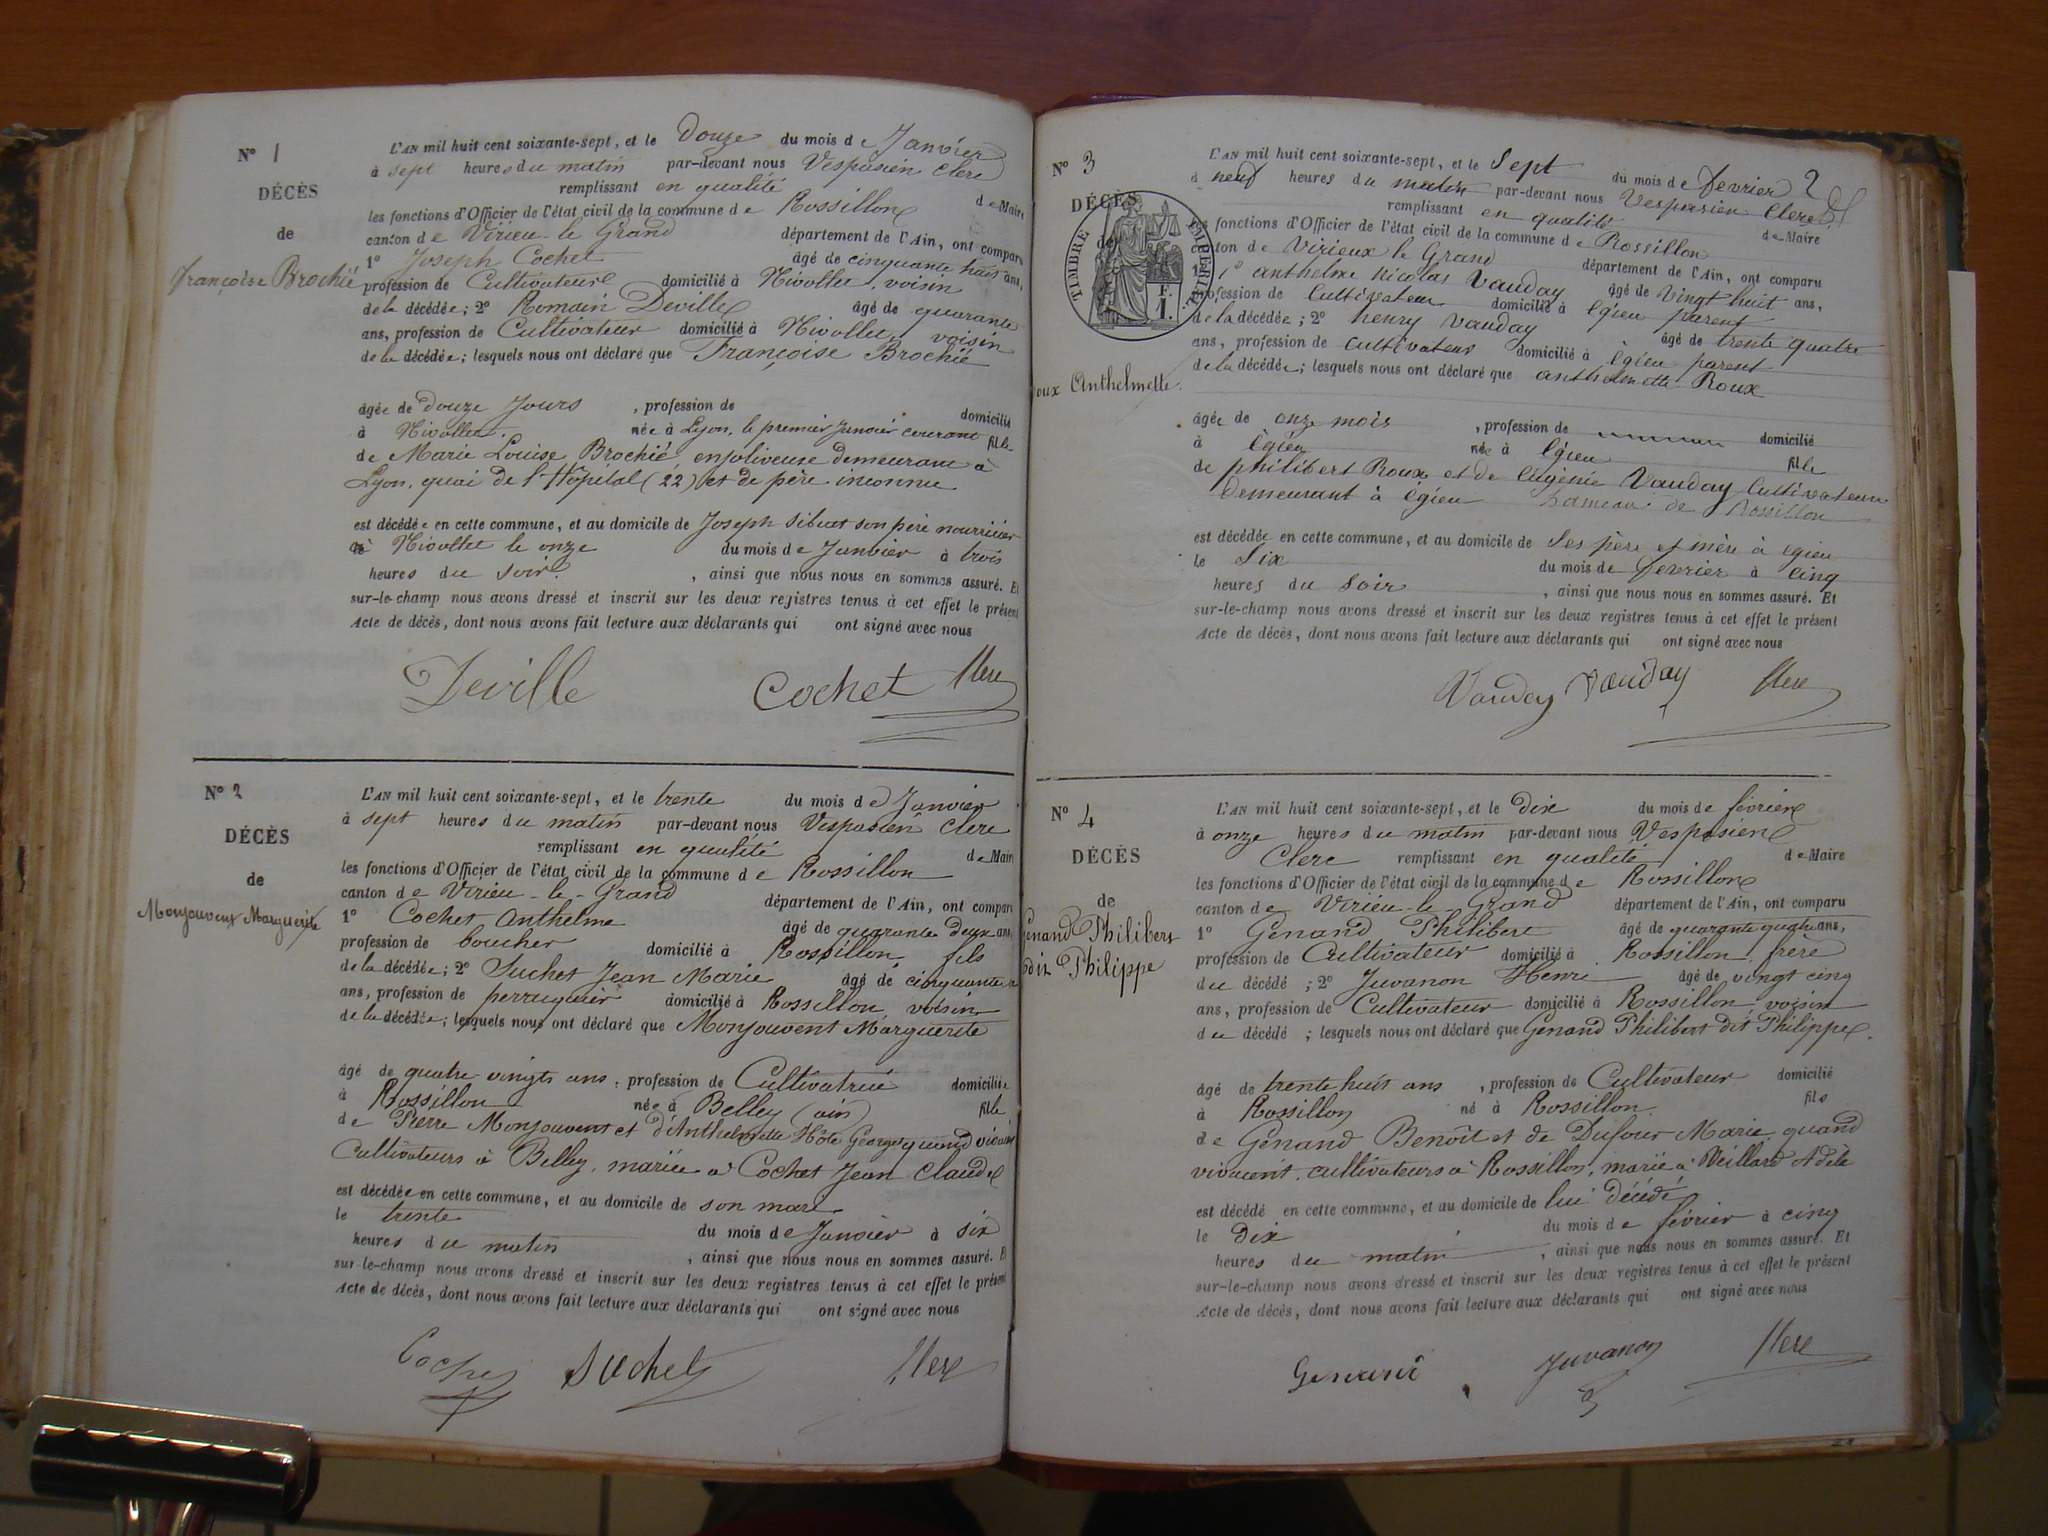 N° 1
DÉCÈS
de
françoise Brochié
L'AN mil huit cent soixante-sept, et le Douze du mois de Janvier
à sept heures du matin par-devant nous Vespasien Clerc
remplissant en qualité de Maire
les fonctions d'Officier de l'état civil de la commune de Rossillon
canton de Virieu-le-Grand département de l'Ain, ont comparu
1° Joseph Cochet âgé de cinquante huit ans,
profession de Cultivateur domicilié à Nivollet, voisin
de la décédée; 2° Romain Deville âgé de quarante
ans, profession de Cultivateur domicilié à Nivollet, voisin
de la décédée; lesquels nous ont déclaré que Françoise Brochié
âgée de douze jours, profession de domicilié
à Nivollet. née à Lyon, le premier janvier courant fille
de Marie Louise Brochié enjoliveuse demeurant à
Lyon, quai de l'Hôpital (22) et de père inconnu
est décédée en cette commune, et au domicile de Joseph Sibuet son père nourricier
à Nivollet le onze du mois de Janvier à trois
heures du soir, ainsi que nous nous en sommes assuré. Et
sur-le-champ nous avons dressé et inscrit sur les deux registres tenus à cet effet le présent
Acte de décès, dont nous avons fait lecture aux déclarants qui ont signé avec nous
Deville Cochet Clerc
N° 2
DÉCÈS
de
Monjouvent Marguerite
L'AN mil huit cent soixante-sept, et le trente du mois de Janvier
à sept heures du matin par-devant nous Vespasien Clerc
remplissant en qualité de Maire
les fonctions d'Officier de l'état civil de la commune de Rossillon
canton de Virieu-le-Grand département de l'Ain, ont comparu
1° Cochet Anthelme âgé de quarante deux ans
profession de boucher domicilié à Rossillon fils
de la décédée; 2° Suchet Jean Marie âgé de cinquante
ans, profession de perruquier domicilié à Rossillon, voisin
de la décédée; lesquels nous ont déclaré que Monjouvent Marguerite
âgé de quatre vingts ans, profession de Cultivatrice domiciliée
à Rossillon née à Belley (ain) fille
de Pierre Monjouvent et d'Anthelmette Hôte Georges quand vivaient
Cultivateurs à Belley, mariée à Cochet Jean Claude
est décédée en cette commune, et au domicile de son mari
le trente du mois de Janvier à six
heures du matin, ainsi que nous nous en sommes assuré. Et
sur-le-champ nous avons dressé et inscrit sur les deux registres tenus à cet effet le présent
Acte de décès, dont nous avons fait lecture aux déclarants qui ont signé avec nous
Cochet Suchet Clerc
2
N° 3
DÉCÈS
de
TIMBRE IMPÉRIAL
F. 1.
Roux Anthelmette.
L'AN mil huit cent soixante-sept, et le Sept du mois de Fevrier
à neuf heures du matin par-devant nous Vespasien Clerc
remplissant en qualité de Maire
les fonctions d'Officier de l'état civil de la commune de Rossillon
canton de Virieux le Grand département de l'Ain, ont comparu
1° anthelme Nicolas Vauday âgé de vingt huit ans,
profession de Cultivateur domicilié à Egieu parent
de la décédée; 2° henry Vauday âgé de trente quatre
ans, profession de Cultivateur domicilié à Egieu parent
de la décédée; lesquels nous ont déclaré que anthelmette Roux
âgée de onze mois, profession de domicilié
à Egieu née à Egieu fille
de philibert Roux et de Eugénie Vauday Cultivateurs
demeurant à Egieu hameau de Rossillon
est décédée en cette commune, et au domicile de Ses père et mère à Egieu
le Six du mois de Fevrier à Cinq
heures du Soir, ainsi que nous nous en sommes assuré. Et
sur-le-champ nous avons dressé et inscrit sur les deux registres tenus à cet effet le présent
Acte de décès, dont nous avons fait lecture aux déclarants qui ont signé avec nous
Vauday Vauday Clerc
N° 4
DÉCÈS
de
Génand Philibert
dit Philippe
L'AN mil huit cent soixante-sept, et le dix du mois de février
à onze heures du matin par-devant nous Vespasien
Clerc remplissant en qualité de Maire
les fonctions d'Officier de l'état civil de la commune de Rossillon
canton de Virieu-le-Grand département de l'Ain, ont comparu
1° Génand Philibert âgé de quarante quatre ans,
profession de Cultivateur domicilié à Rossillon, frère
du décédé; 2° Juvanon Henri âgé de vingt cinq
ans, profession de Cultivateur domicilié à Rossillon, voisin
du décédé; lesquels nous ont déclaré que Génand Philibert dit Philippe.
âgé de trente huit ans, profession de Cultivateur domicilié
à Rossillon né à Rossillon. fils
de Génand Benoît et de Dufour Marie, quand
vivaient, cultivateurs à Rossillon, marié à Veillard Adèle
est décédé en cette commune, et au domicile de lui décédé
le dix du mois de février à cinq
heures du matin, ainsi que nous nous en sommes assuré. Et
sur-le-champ nous avons dressé et inscrit sur les deux registres tenus à cet effet le présent
Acte de décès, dont nous avons fait lecture aux déclarants qui ont signé avec nous
Génand Juvanon Clerc